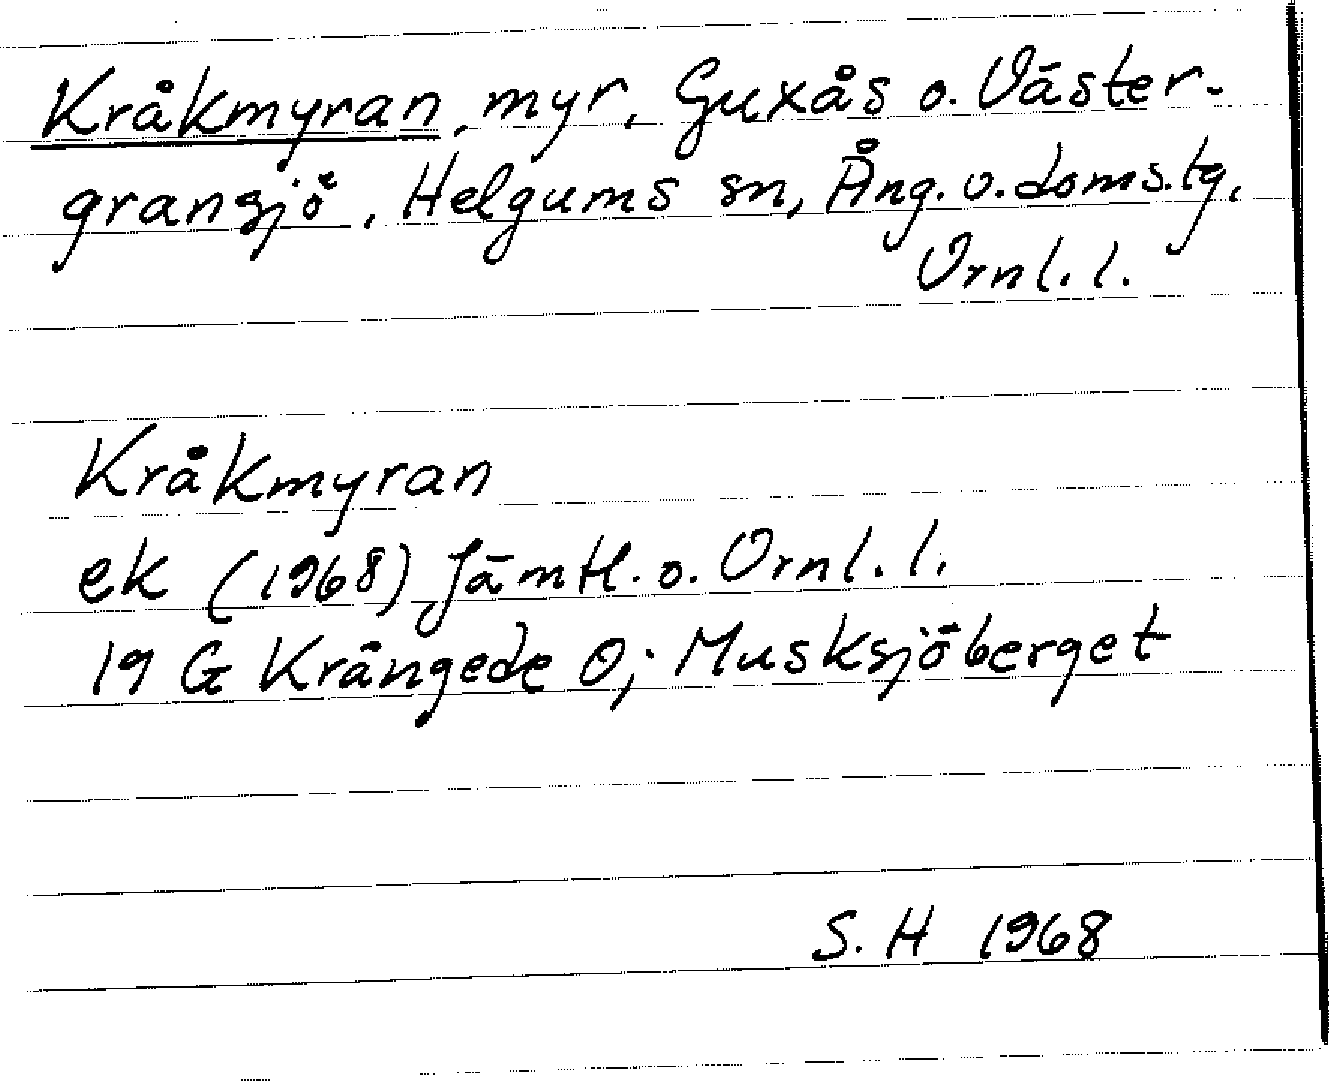 Kråkmyran, myr, Guxås o. Väster-
gransjö, Helgums sn, Ång. v. doms.tg,
Örnl. l.
Kråkmyran
ek (1968) Jämtl. o. Örnl. l.
19 G Krångede O; Musksjöberget
S. H 1968